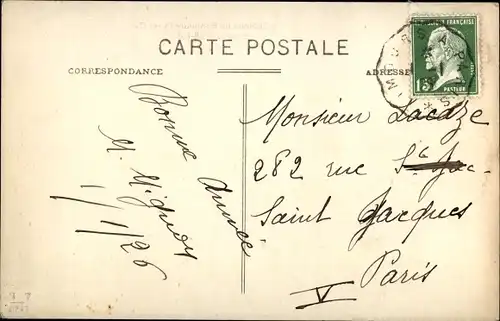 CARTE POSTALE
CORRESPONDANCE
ADRESSE
RÉPUBLIQUE FRANÇAISE
15c
PASTEUR
Bonne année
M. Mignon
1/1/26
Monsieur Lacaze
282 rue St Jac
Saint Jacques
Paris
V